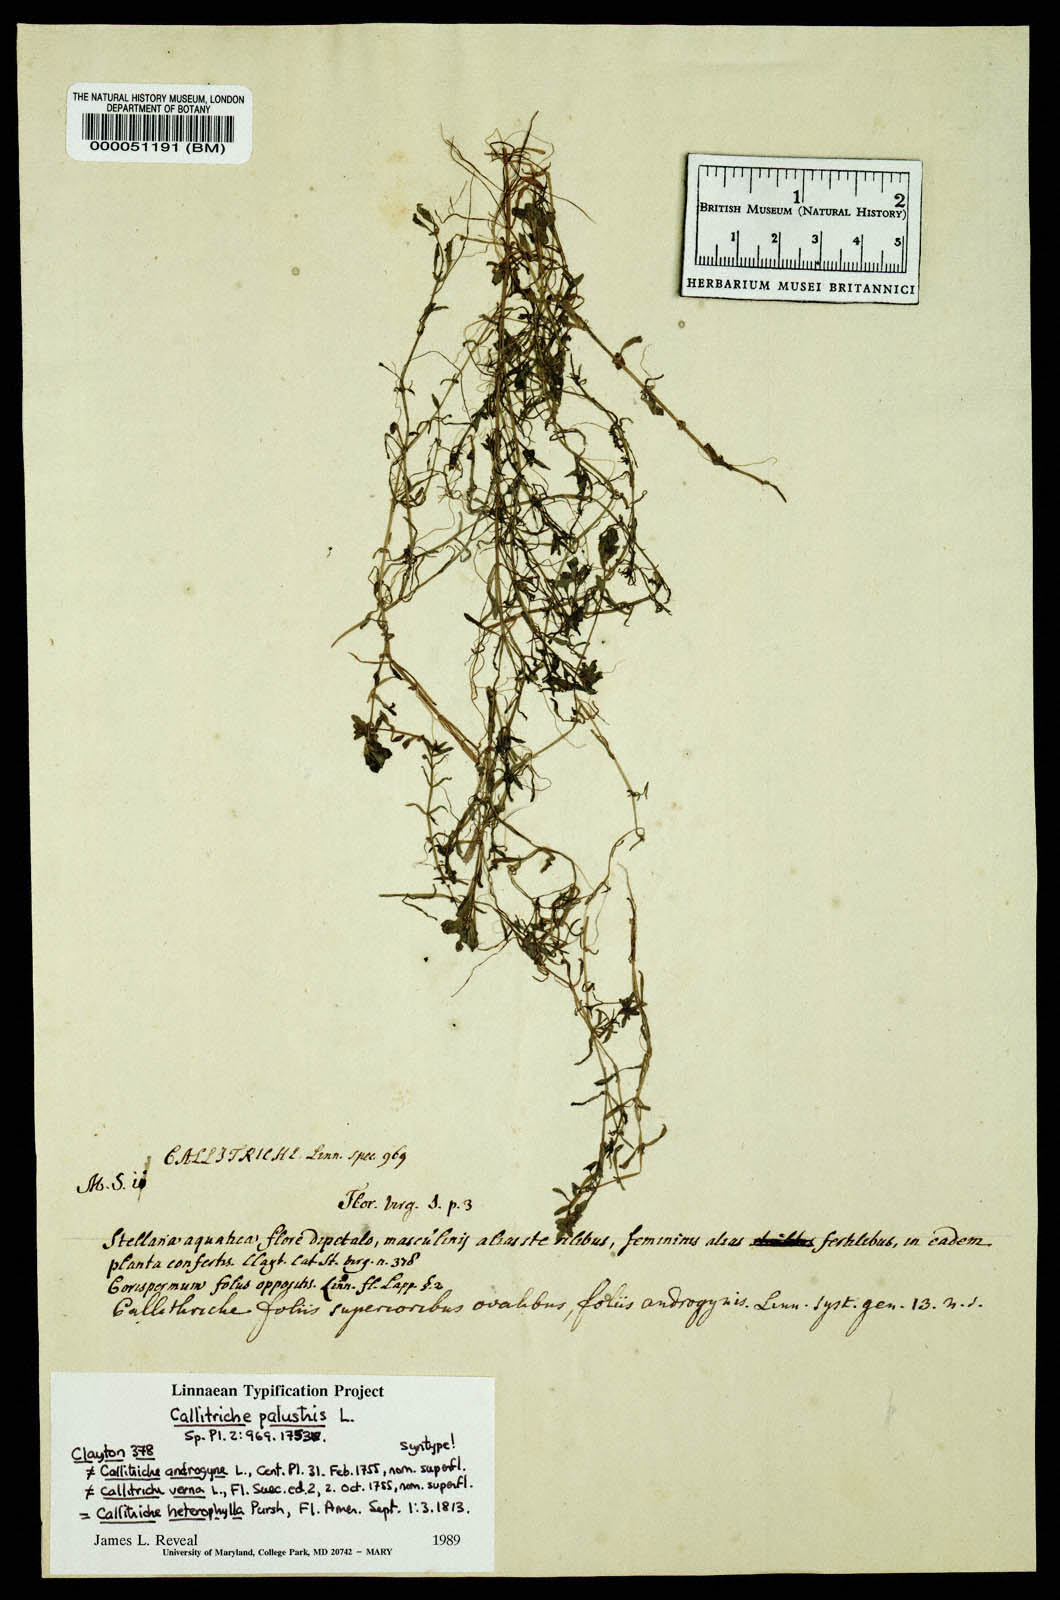 THE NATURAL HISTORY MUSEUM, LONDON
DEPARTMENT OF BOTANY
000051191 (BM)
1 2
BRITISH MUSEUM (NATURAL HISTORY)
1 2 3 4 5
HERBARIUM MUSEI BRITANNICI
CALLITRICHE. Linn. spec. 969
M. S.
Flor. Virg. p. 3
Stellaria aquatica, flore dipetalo, masculinis alias sterilibus, femininis alias fertilibus, in eadem
planta confertis. Clayt. Cat. St. Virg. n. 378
Corispermum foliis oppositis. Linn. fl. Lapp. § 2
Callithriche foliis superioribus ovalibus, foliis androgynis. Linn. Syst. gen. 13. n. 1.
Linnaean Typification Project
Callitriche palustris L.
Sp. Pl. 2: 969. 1753.
Clayton 378 Syntype!
≠ Callitriche androgyne L., Cent. Pl. 31. Feb. 1755, nom. superfl.
≠ Callitriche verna L., Fl. Suec. ed. 2, 2. Oct. 1755, nom. superfl.
= Callitriche heterophylla Pursh, Fl. Amer. Sept. 1: 3. 1813.
James L. Reveal 1989
University of Maryland, College Park, MD 20742 – MARY